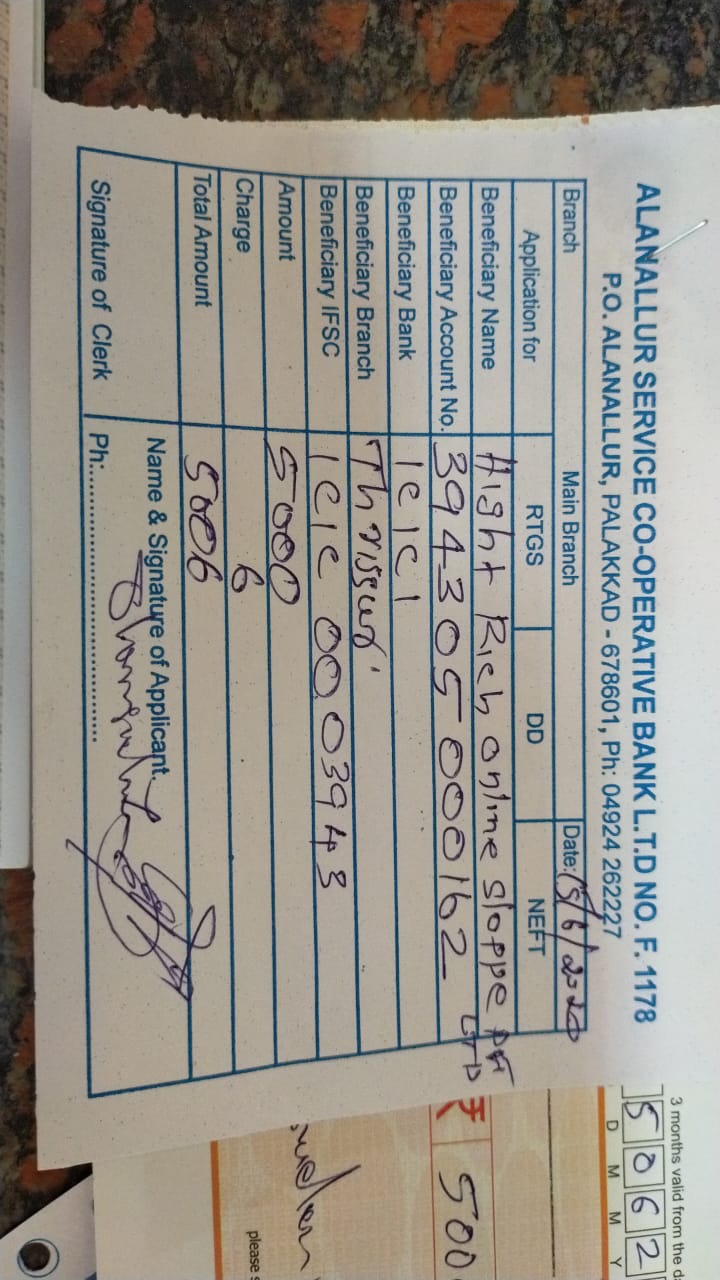 ALANALLUR SERVICE CO-OPERATIVE BANK L.T.D NO. F. 1178
P.O. ALANALLUR, PALAKKAD - 678601, Ph: 04924 262227
Branch Main Branch Date: 15/6/2020
Application for RTGS DD NEFT
Beneficiary Name Hight Rich online sloppe Pvt LTD
Beneficiary Account No. 394305000162
Beneficiary Bank ICICI
Beneficiary Branch Thrissur
Beneficiary IFSC ICIC 0003943
Amount 5000
Charge 6
Total Amount 5006
Name & Signature of Applicant
Signature of Clerk Ph:
3 months valid from the d
5 0 6 2
D M M Y
₹ 500
please s